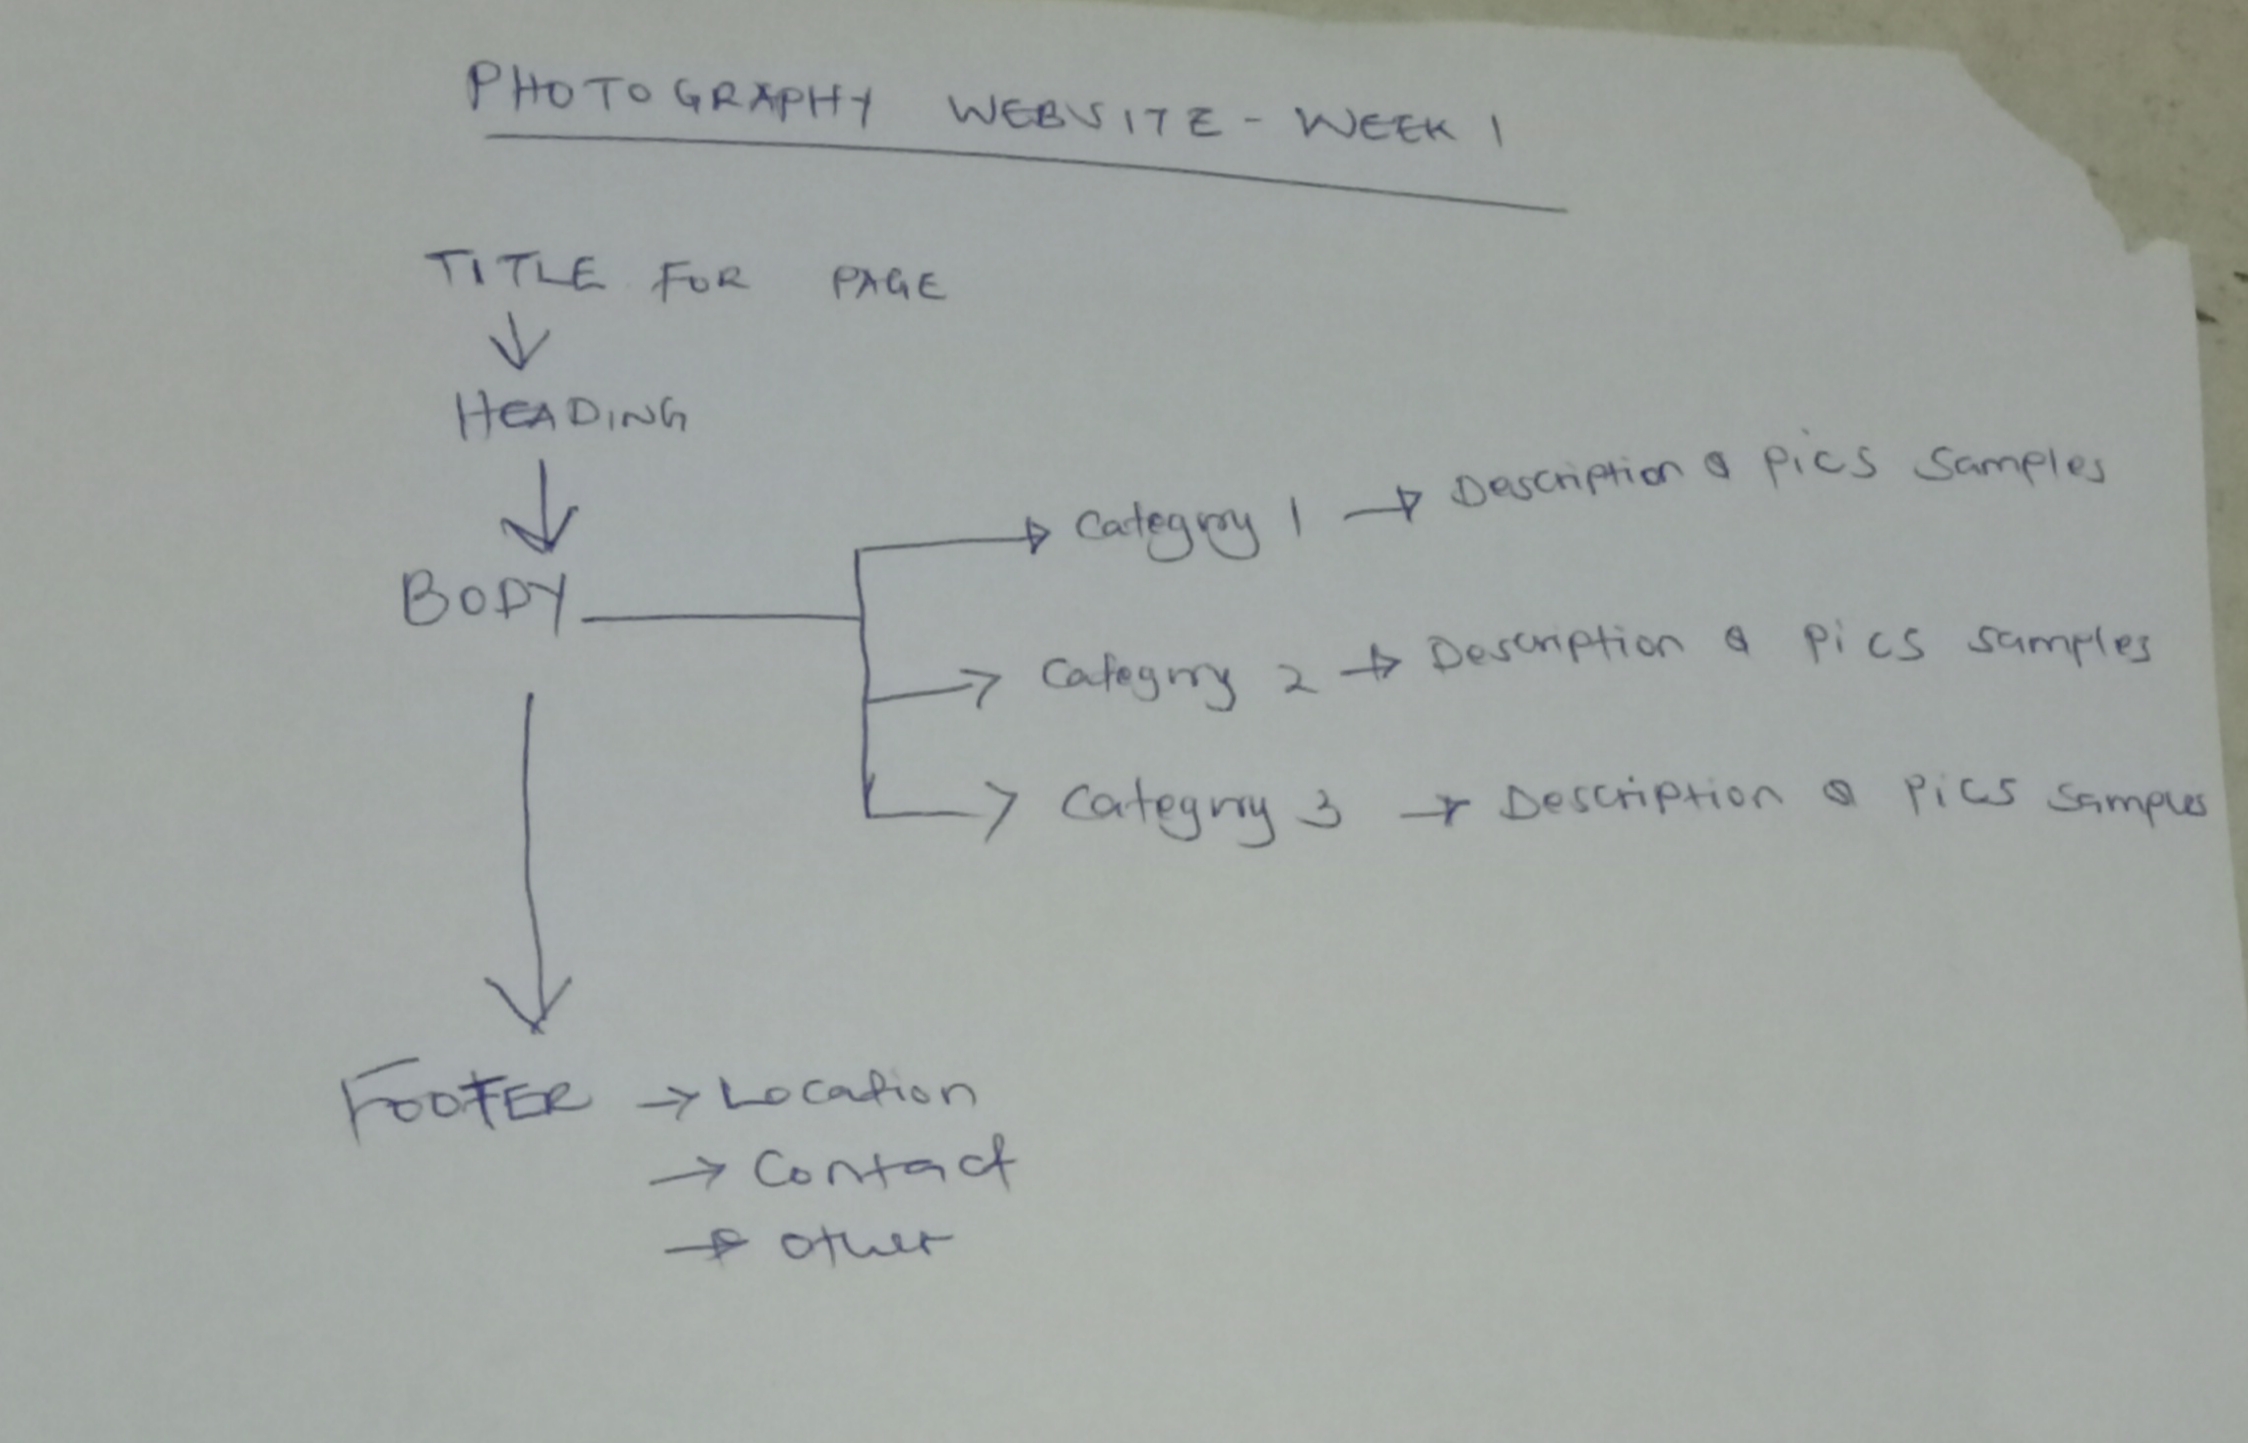 PHOTOGRAPHY WEBSITE - WEEK 1
TITLE FOR PAGE
HEADING
BODY
Category 1 → Description & Pics Samples
Category 2 → Description & Pics samples
Category 3 → Description & Pics samples
FOOTER → Location
→ Contact
→ other